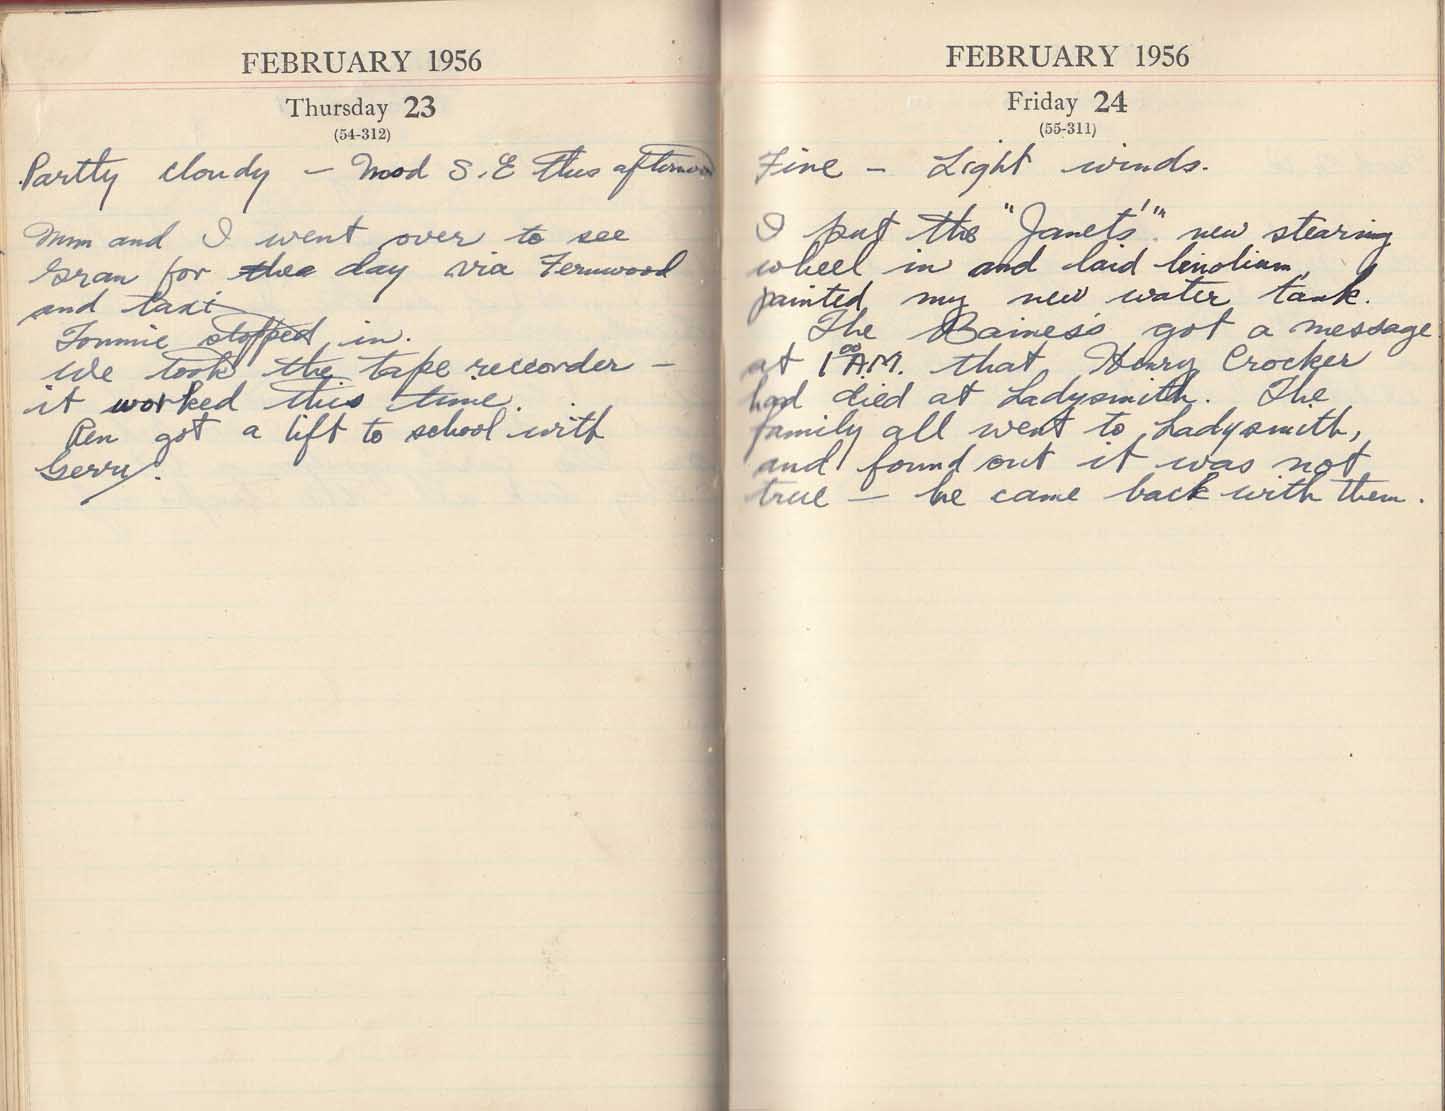 FEBRUARY 1956
Thursday 23
(54-312)
Partly cloudy – Mod S.E this afternoon
Mum and I went over to see
Gran for the day via Fernwood
and taxi
Tommie stopped in.
We took the tape receorder –
it worked this time.
Pen got a lift to school with
Gerry.
FEBRUARY 1956
Friday 24
(55-311)
Fine – Light winds.
I put the "Janet's'" new stearing
wheel in and laid linolium,
painted my new water tank.
The Baines's got a message
at 1⁰⁰ A.M. that Henry Crocker
had died at Ladysmith. The
family all went to Ladysmith,
and found out it was not
true – he came back with them.